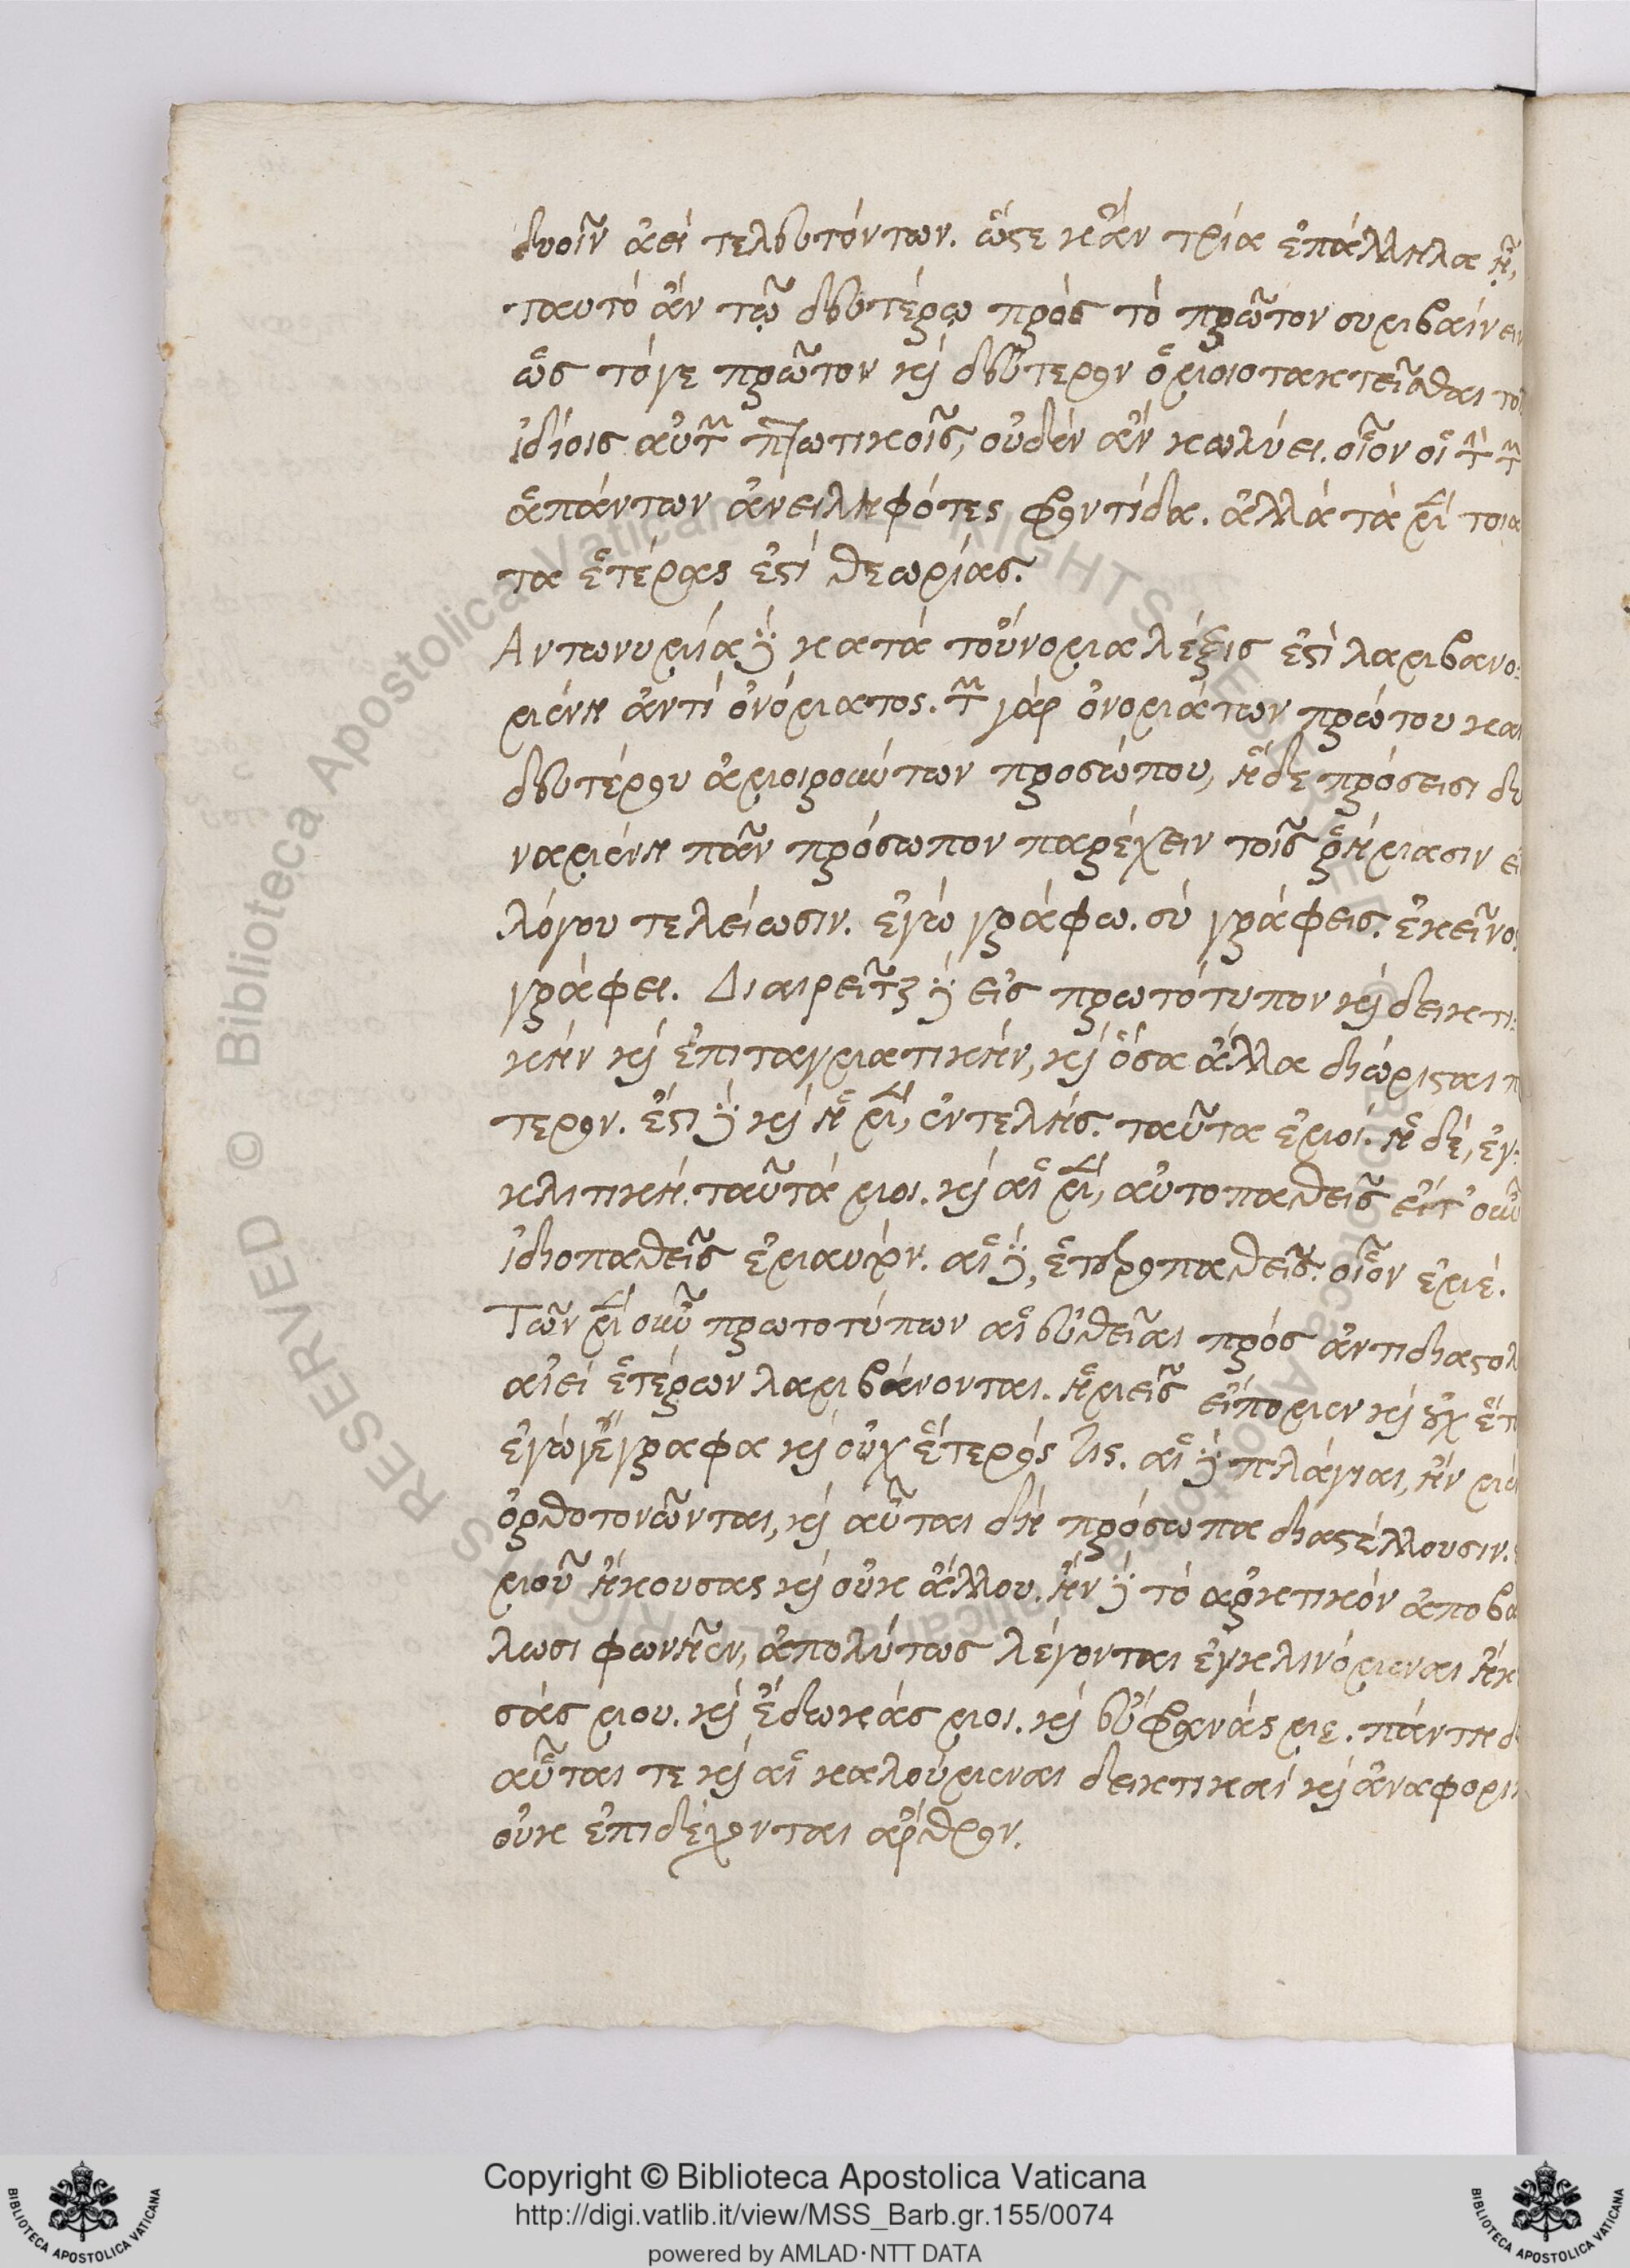 δυοῖν ἀεὶ τελευτόντων. ὥστε κἂν τρία ἐπάλληλα ᾖ,
ταυτὸ ἂν τῷ δευτέρῳ πρὸς τὸ πρῶτον συμβαίνειν
ὡς τόγε πρῶτον καὶ δεύτερον ὁμοιοτακτεῖσθαι
ἰδίοις αὐτῶν πτωτικοῖς, οὐδὲν ἂν κωλύει. οἷον οἱ τὴν τῶν
ἁπάντων ἀνειληφότες φροντίδα. ἀλλὰ τὰ μὲν
τα ἑτέρας ἐστὶ θεωρίας.
Αντωνυμία δὲ κατὰ τοὔνομα λέξις ἐστὶ λαμβανο-
μένη ἀντὶ ὀνόματος. τῶν γὰρ ὀνομάτων πρώτου καὶ
δευτέρου ἀμοιρούντων προσώπου, ἥδε πρόσεισι δυ
ναμένη πᾶν πρόσωπον παρέχειν τοῖς ῥήμασιν εἰ
λόγου τελείωσιν. ἐγὼ γράφω. σὺ γράφεις. ἐκεῖνος
γράφει. Διαιρεῖται δὲ εἰς πρωτότυπον καὶ δεικτι-
κὴν καὶ ἐπιταγματικὴν, καὶ ὅσα ἄλλα διώρισται
τερον. ἔστι δὲ καὶ ἡ μὲν, ἐντελής. ταῦτα ἐμοί. ἡ δέ, ἐγ-
κλιτική. ταῦτά μοι. καὶ αἱ μὲν, αὐτοπαθεῖς εἴτ' οὖν
ἰδιοπαθεῖς ἐμαυτόν. αἱ δὲ, ἑτεροπαθεῖς. οἷον ἐμέ.
Τῶν μὲν οὖν πρωτοτύπων αἱ εὐθεῖαι πρὸς ἀντιδιαστολ
αἰεὶ ἑτέρων λαμβάνονται. ἡμεῖς εἴπομεν καὶ οὐχ ἕτ
ἐγὼ γέγραφα καὶ οὐχ ἕτερός τις. αἱ δὲ πλάγιαι, ἢν μὲν
ὀρθοτονῶνται, καὶ αὗται δὴ πρόσωπα διαστέλλουσιν.
μοῦ ἤκουσας καὶ οὐκ ἄλλου. ἢν δὲ τὸ ἀρκτικὸν ἀποβά
λωσι φωνῆεν, ἀπολύτως λέγονται ἐγκλινόμεναι ἤκ
σάς μου. καὶ ἔδωκάς μοι. καὶ εὔφρανάς με. πάντη
αὗται τε καὶ αἱ καλούμεναι δεικτικαὶ καὶ ἀναφορι
οὐκ ἐπιδέχονται ἄρθρον.
Copyright © Biblioteca Apostolica Vaticana
http://digi.vatlib.it/view/MSS_Barb.gr.155/0074
powered by AMLAD·NTT DATA